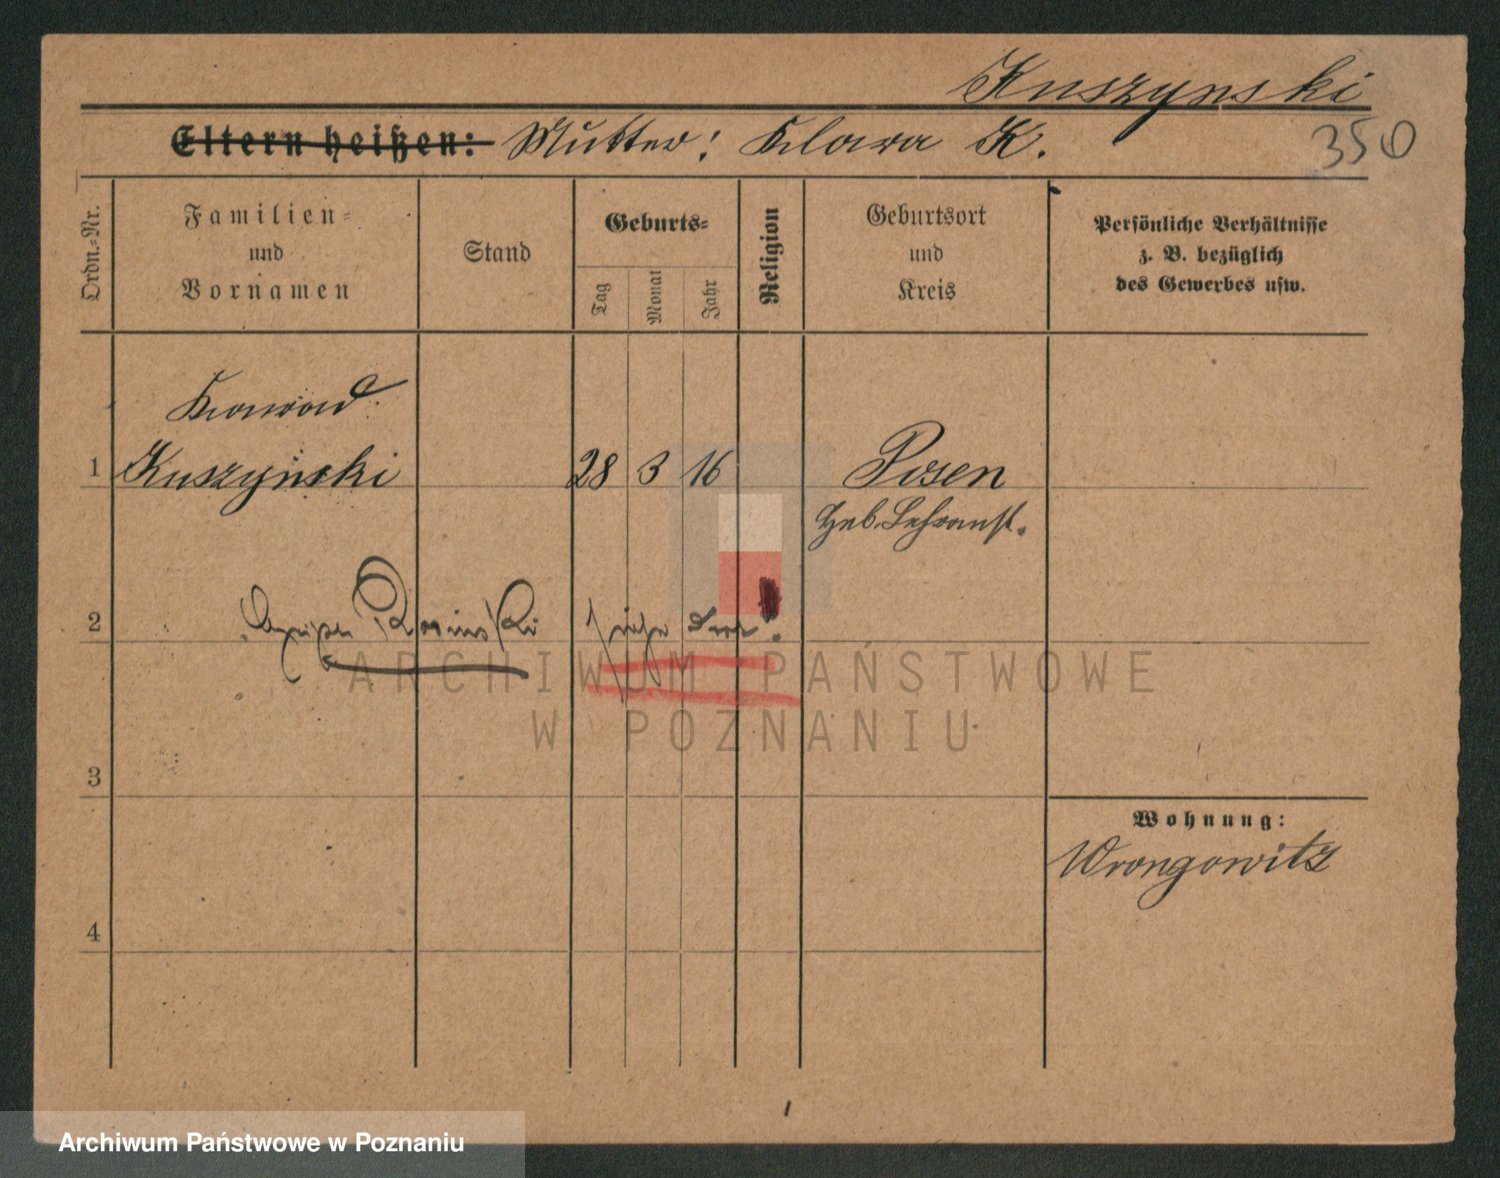 Kuszynski
350
Eltern heißen: Mutter: Klara K.
Ordn.-Nr.
Familien-
und
Vornamen
Stand
Geburts-
Tag
Monat
Jahr
Religion
Geburtsort
und
Kreis
Persönliche Verhältnisse
z. B. bezüglich
des Gewerbes usw.
Konrad
1 Kuszyński 28 3 16 Posen
Heb. Lehranst.
2 siehe dort.
3
Wohnung:
Wrongowitz
4
ARCHIWUM PAŃSTWOWE
W POZNANIU
Archiwum Państwowe w Poznaniu